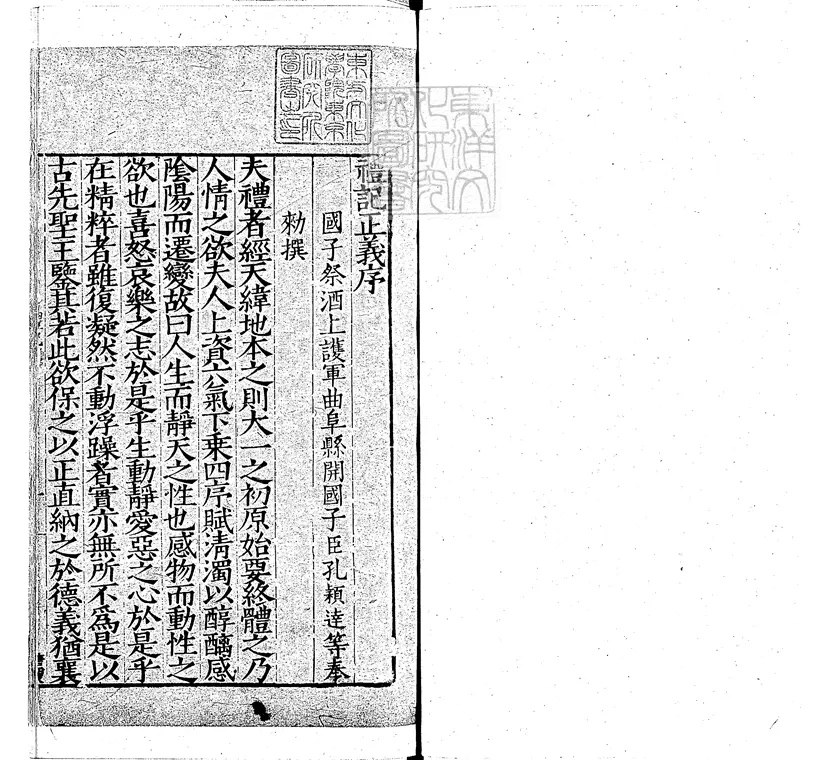 禮記正義序
國子祭酒上護軍曲阜縣開國子臣孔穎達等奉
勑撰
夫禮者經天緯地本之則大一之初原始要終體之乃
人情之欲夫人上資六氣下乗四序賦淸濁以醇醨感
隂陽而遷變故曰人生而靜天之性也感物而動性之
欲也喜怒哀樂之志於是乎生動靜愛惡之心於是乎
在精粹者雖復凝然不動浮躁者實亦無所不爲是以
古先聖王鑒其若此欲保之以正直納之於德義猶襄
東方文化
學院東京
研究所
圖書之印